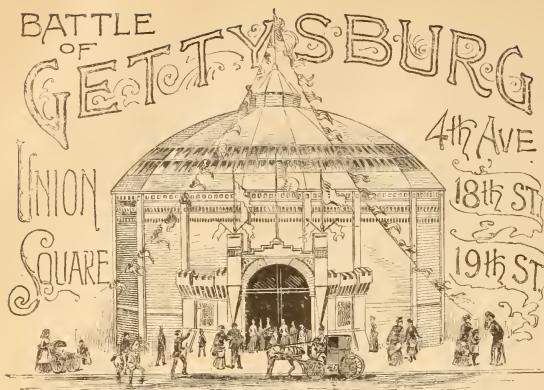 BATTLE
OF
GETTYSBURG
UNION
SQUARE
4th AVE
18th ST
19th ST